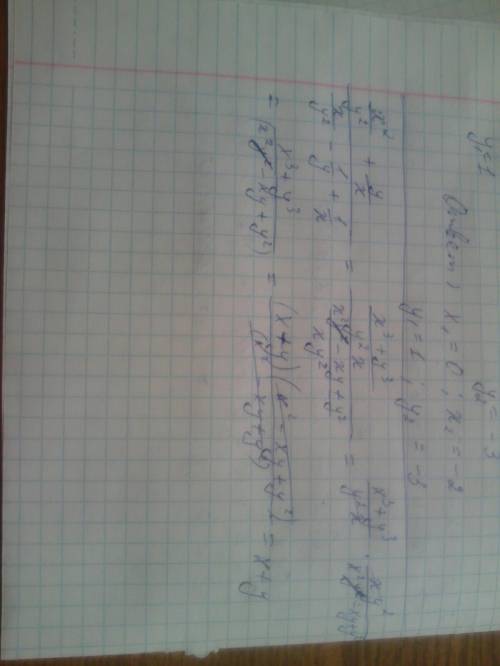 y₁ = 1 y₂ = -3
Ответ: x₁ = 0; x₂ = -2
y₁ = 1; y₂ = -3
(x²/y² + y/x) / (x/y² - 1/y + 1/x) = ((x³+y³)/(y²x)) / ((x² - xy + y²)/(xy²)) = (x³+y³)/(y²x) · xy²/(x² - xy + y²)
= (x³+y³)/(x² - xy + y²) = (x+y)(x² - xy + y²)/(x² - xy + y²) = x+y